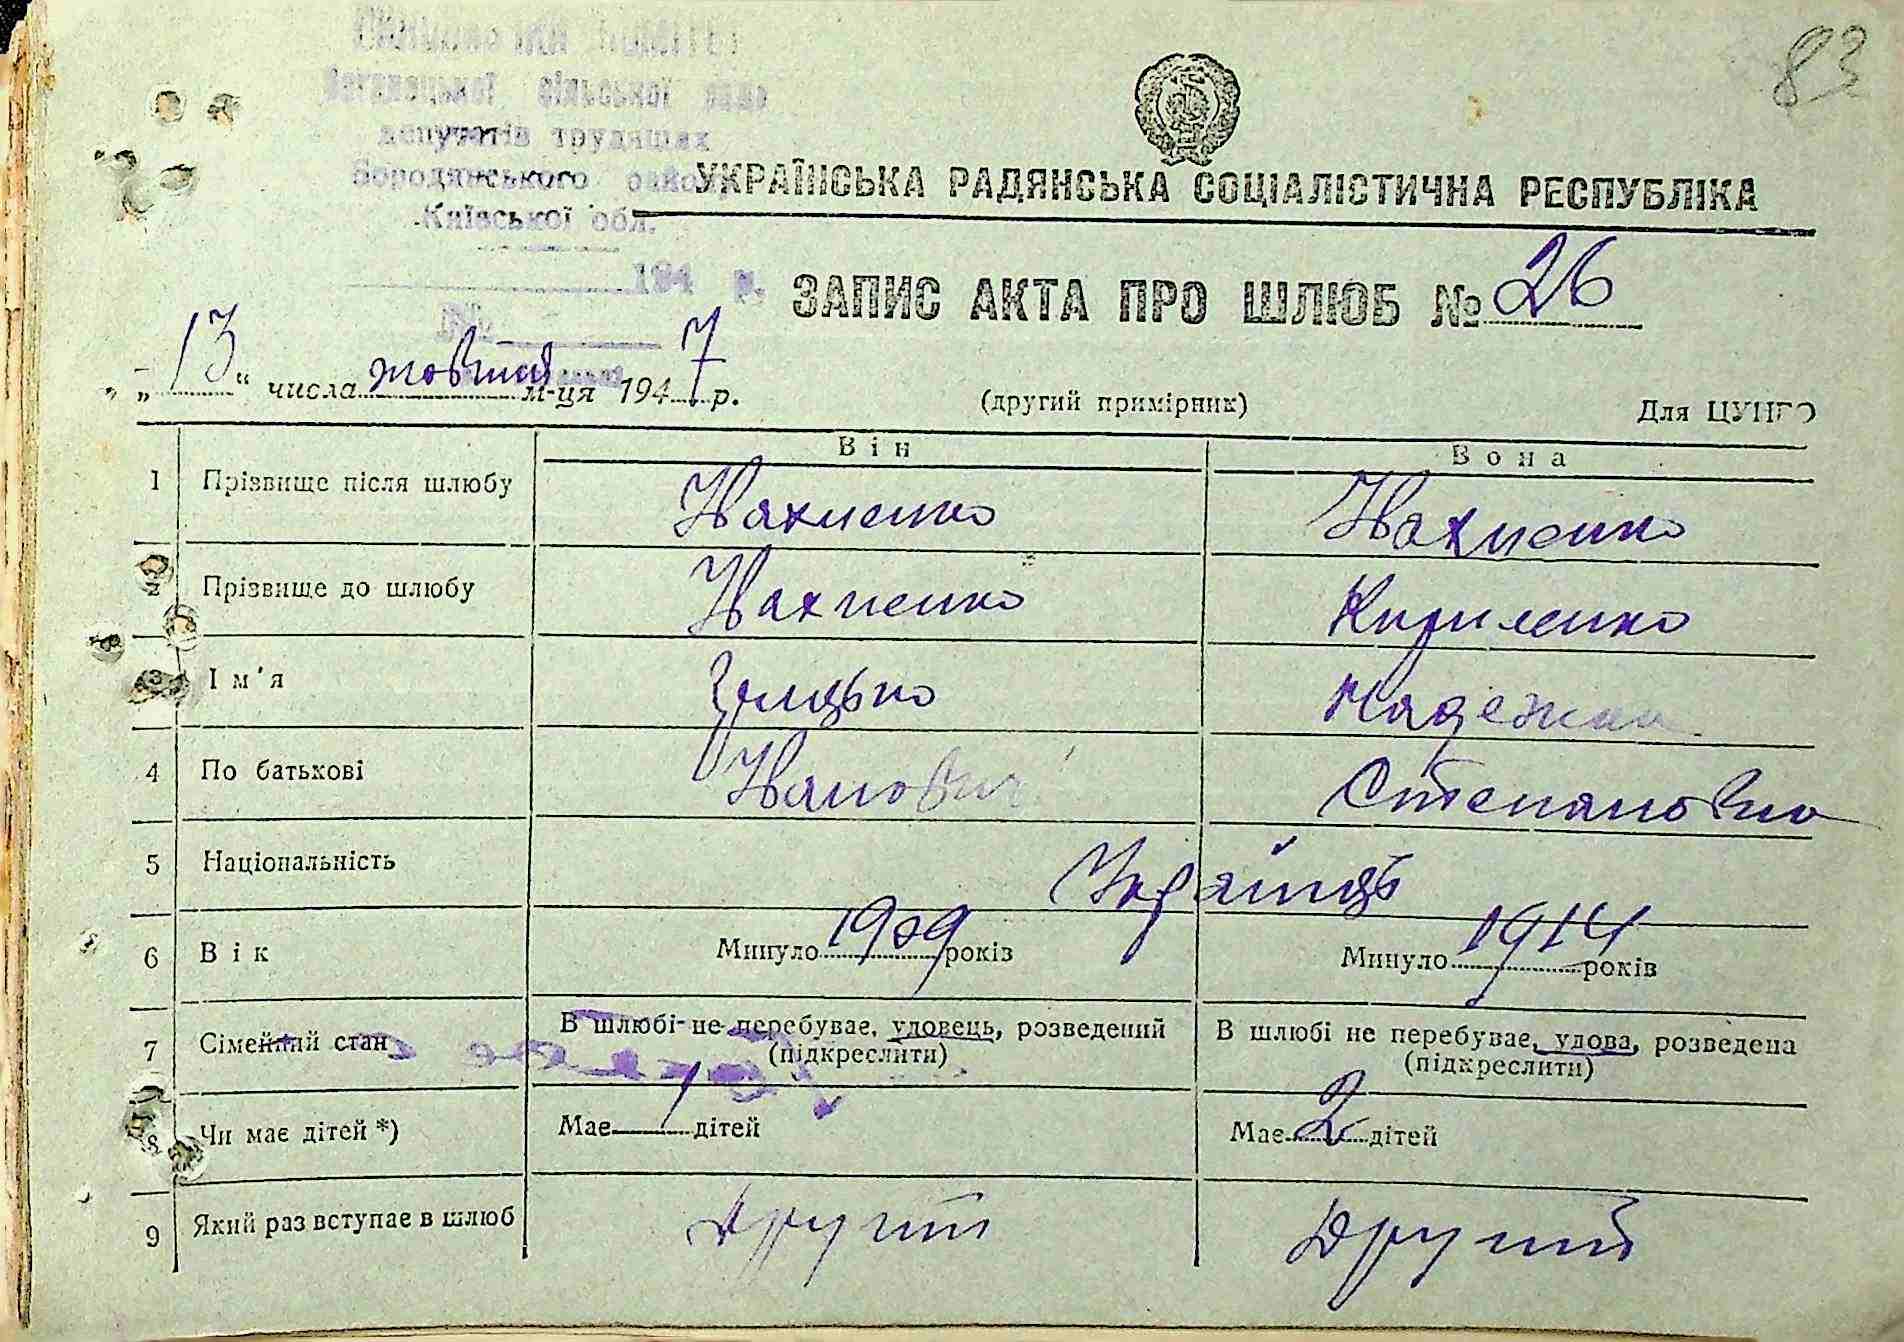 83
Виконавчий комітет
сільської ради
депутатів трудящих
Бородянського району
Київської обл.
УКРАЇНСЬКА РАДЯНСЬКА СОЦІАЛІСТИЧНА РЕСПУБЛІКА
194 р.
№
ЗАПИС АКТА ПРО ШЛЮБ № 26
„ 13 “ числа жовтня м-ця 1947 р.
(другий примірник)
Для ЦУНГО
Він Вона
1 Прізвище після шлюбу
2 Прізвище до шлюбу Кириленко
3 Ім'я Надежда
4 По батькові Іванович Степановна
5 Національність Українці
6 Вік Минуло 1909 років Минуло 1914 років
7 Сімейний стан В шлюбі не перебуває, удовець, розведений В шлюбі не перебуває, удова, розведена
(підкреслити) (підкреслити)
8 Чи має дітей *) Має 1 дітей Має 2 дітей
9 Який раз вступає в шлюб Другий Другий